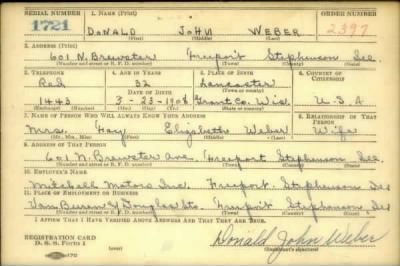 SERIAL NUMBER 1. NAME (Print) ORDER NUMBER
1721 DONALD JOHN WEBER 2397
(First) (Middle) (Last)
2. ADDRESS (Print)
601 N. Brewster Freeport Stephenson Ill.
(Number and street or R. F. D. number) (Town) (County) (State)
3. TELEPHONE 4. AGE IN YEARS 5. PLACE OF BIRTH 6. COUNTRY OF CITIZENSHIP
Red 32 Lancaster
DATE OF BIRTH (Town or county)
1443 3-23-1908 Grant Co. Wis. U.S.A
(Exchange) (Number) (Mo.) (Day) (Yr.) (State or country)
7. NAME OF PERSON WHO WILL ALWAYS KNOW YOUR ADDRESS 8. RELATIONSHIP OF THAT PERSON
Mrs. Fay Elizabeth Weber Wife
(Mr., Mrs., Miss) (First) (Middle) (Last)
9. ADDRESS OF THAT PERSON
601 N. Brewster Ave. Freeport Stephenson Ill
(Number and street or R. F. D. number) (Town) (County) (State)
10. EMPLOYER'S NAME
Mitchell Motors Inc. Freeport. Stephenson Ill
11. PLACE OF EMPLOYMENT OR BUSINESS
Van Buren & Douglas Sts Freeport Stephenson Ill
(Number and street or R. F. D. number) (Town) (County) (State)
I AFFIRM THAT I HAVE VERIFIED ABOVE ANSWERS AND THAT THEY ARE TRUE.
REGISTRATION CARD
D. S. S. FORM 1 Donald John Weber